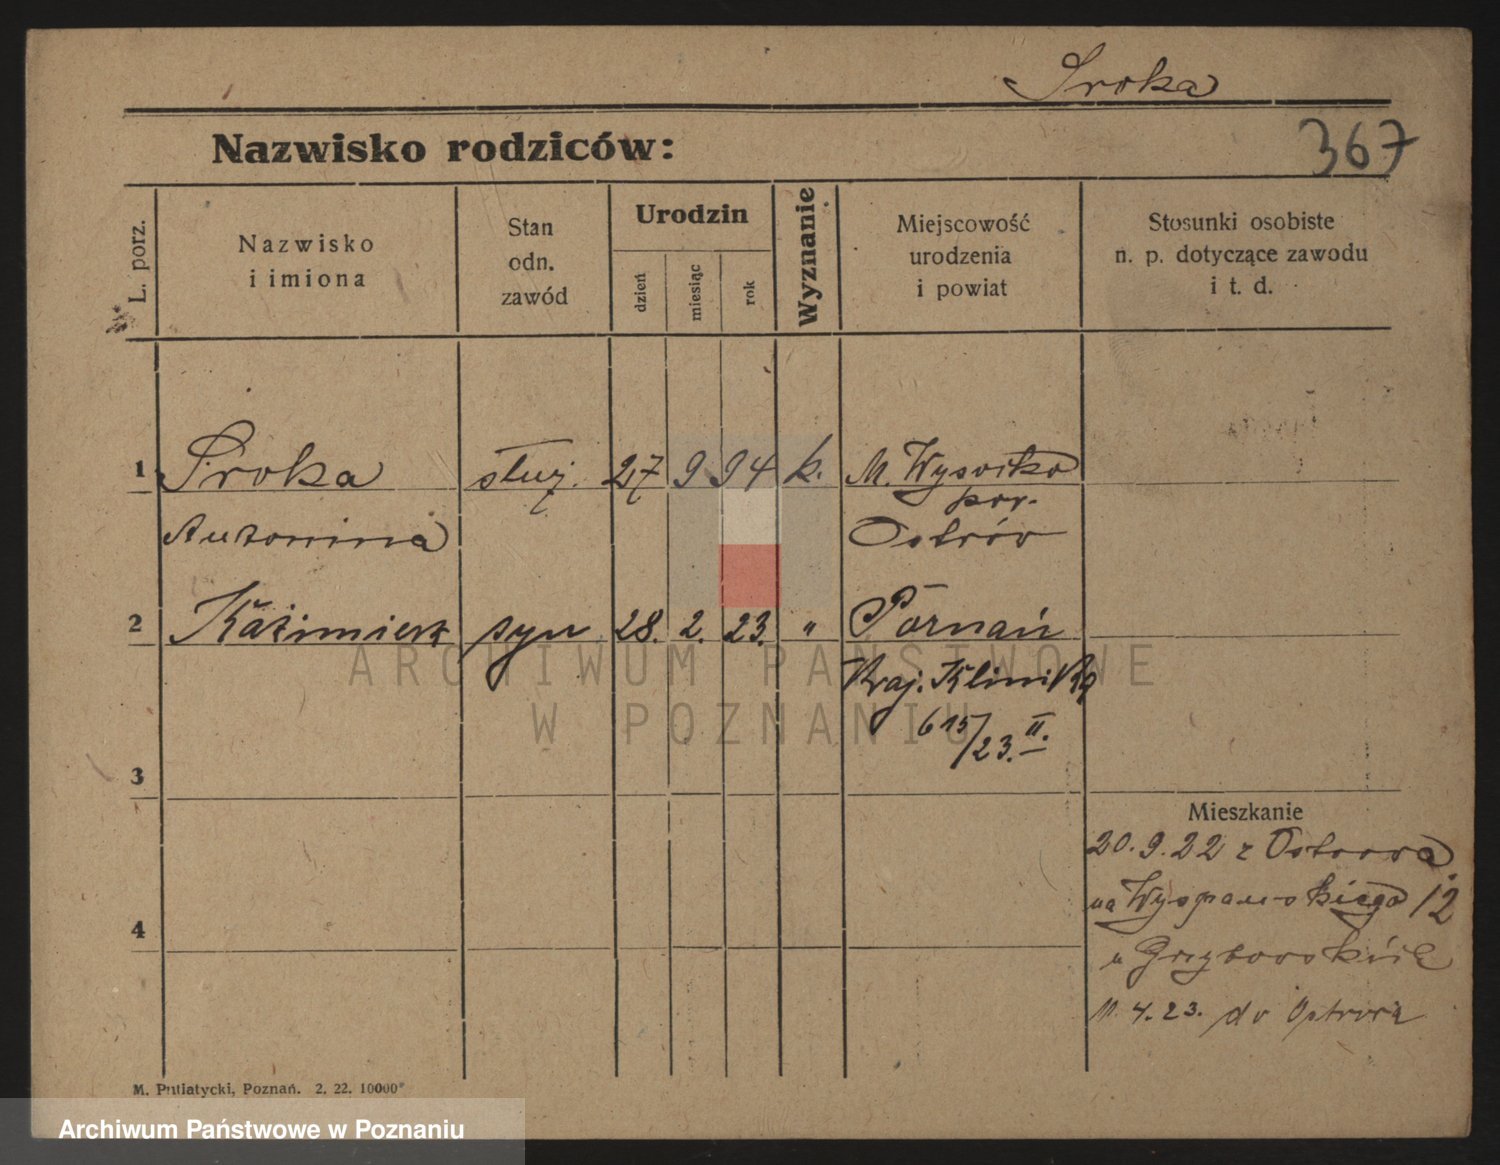 Sroka
Nazwisko rodziców:
367
L. porz.
Nazwisko
i imiona
Stan
odn.
zawód
Urodzin
dzień
miesiąc
rok
Wyznanie
Miejscowość
urodzenia
i powiat
Stosunki osobiste
n. p. dotyczące zawodu
i t. d.
1 Sroka służ. 27 9 94 k. M. Wysocko
pow.
Antonina Ostrów
2 Kazimierz syn 28. 2. 23. " Poznań
Kraj. Klinika
615/23. II.
3
Mieszkanie
20. 9. 22 z Ostrowa
na Wyspiańskiego 12
4
u Grzybowskich
4. 23. do Ostrowa
M. Putiatycki, Poznań. 2. 22. 10000
ARCHIWUM PAŃSTWOWE
W POZNANIU
Archiwum Państwowe w Poznaniu